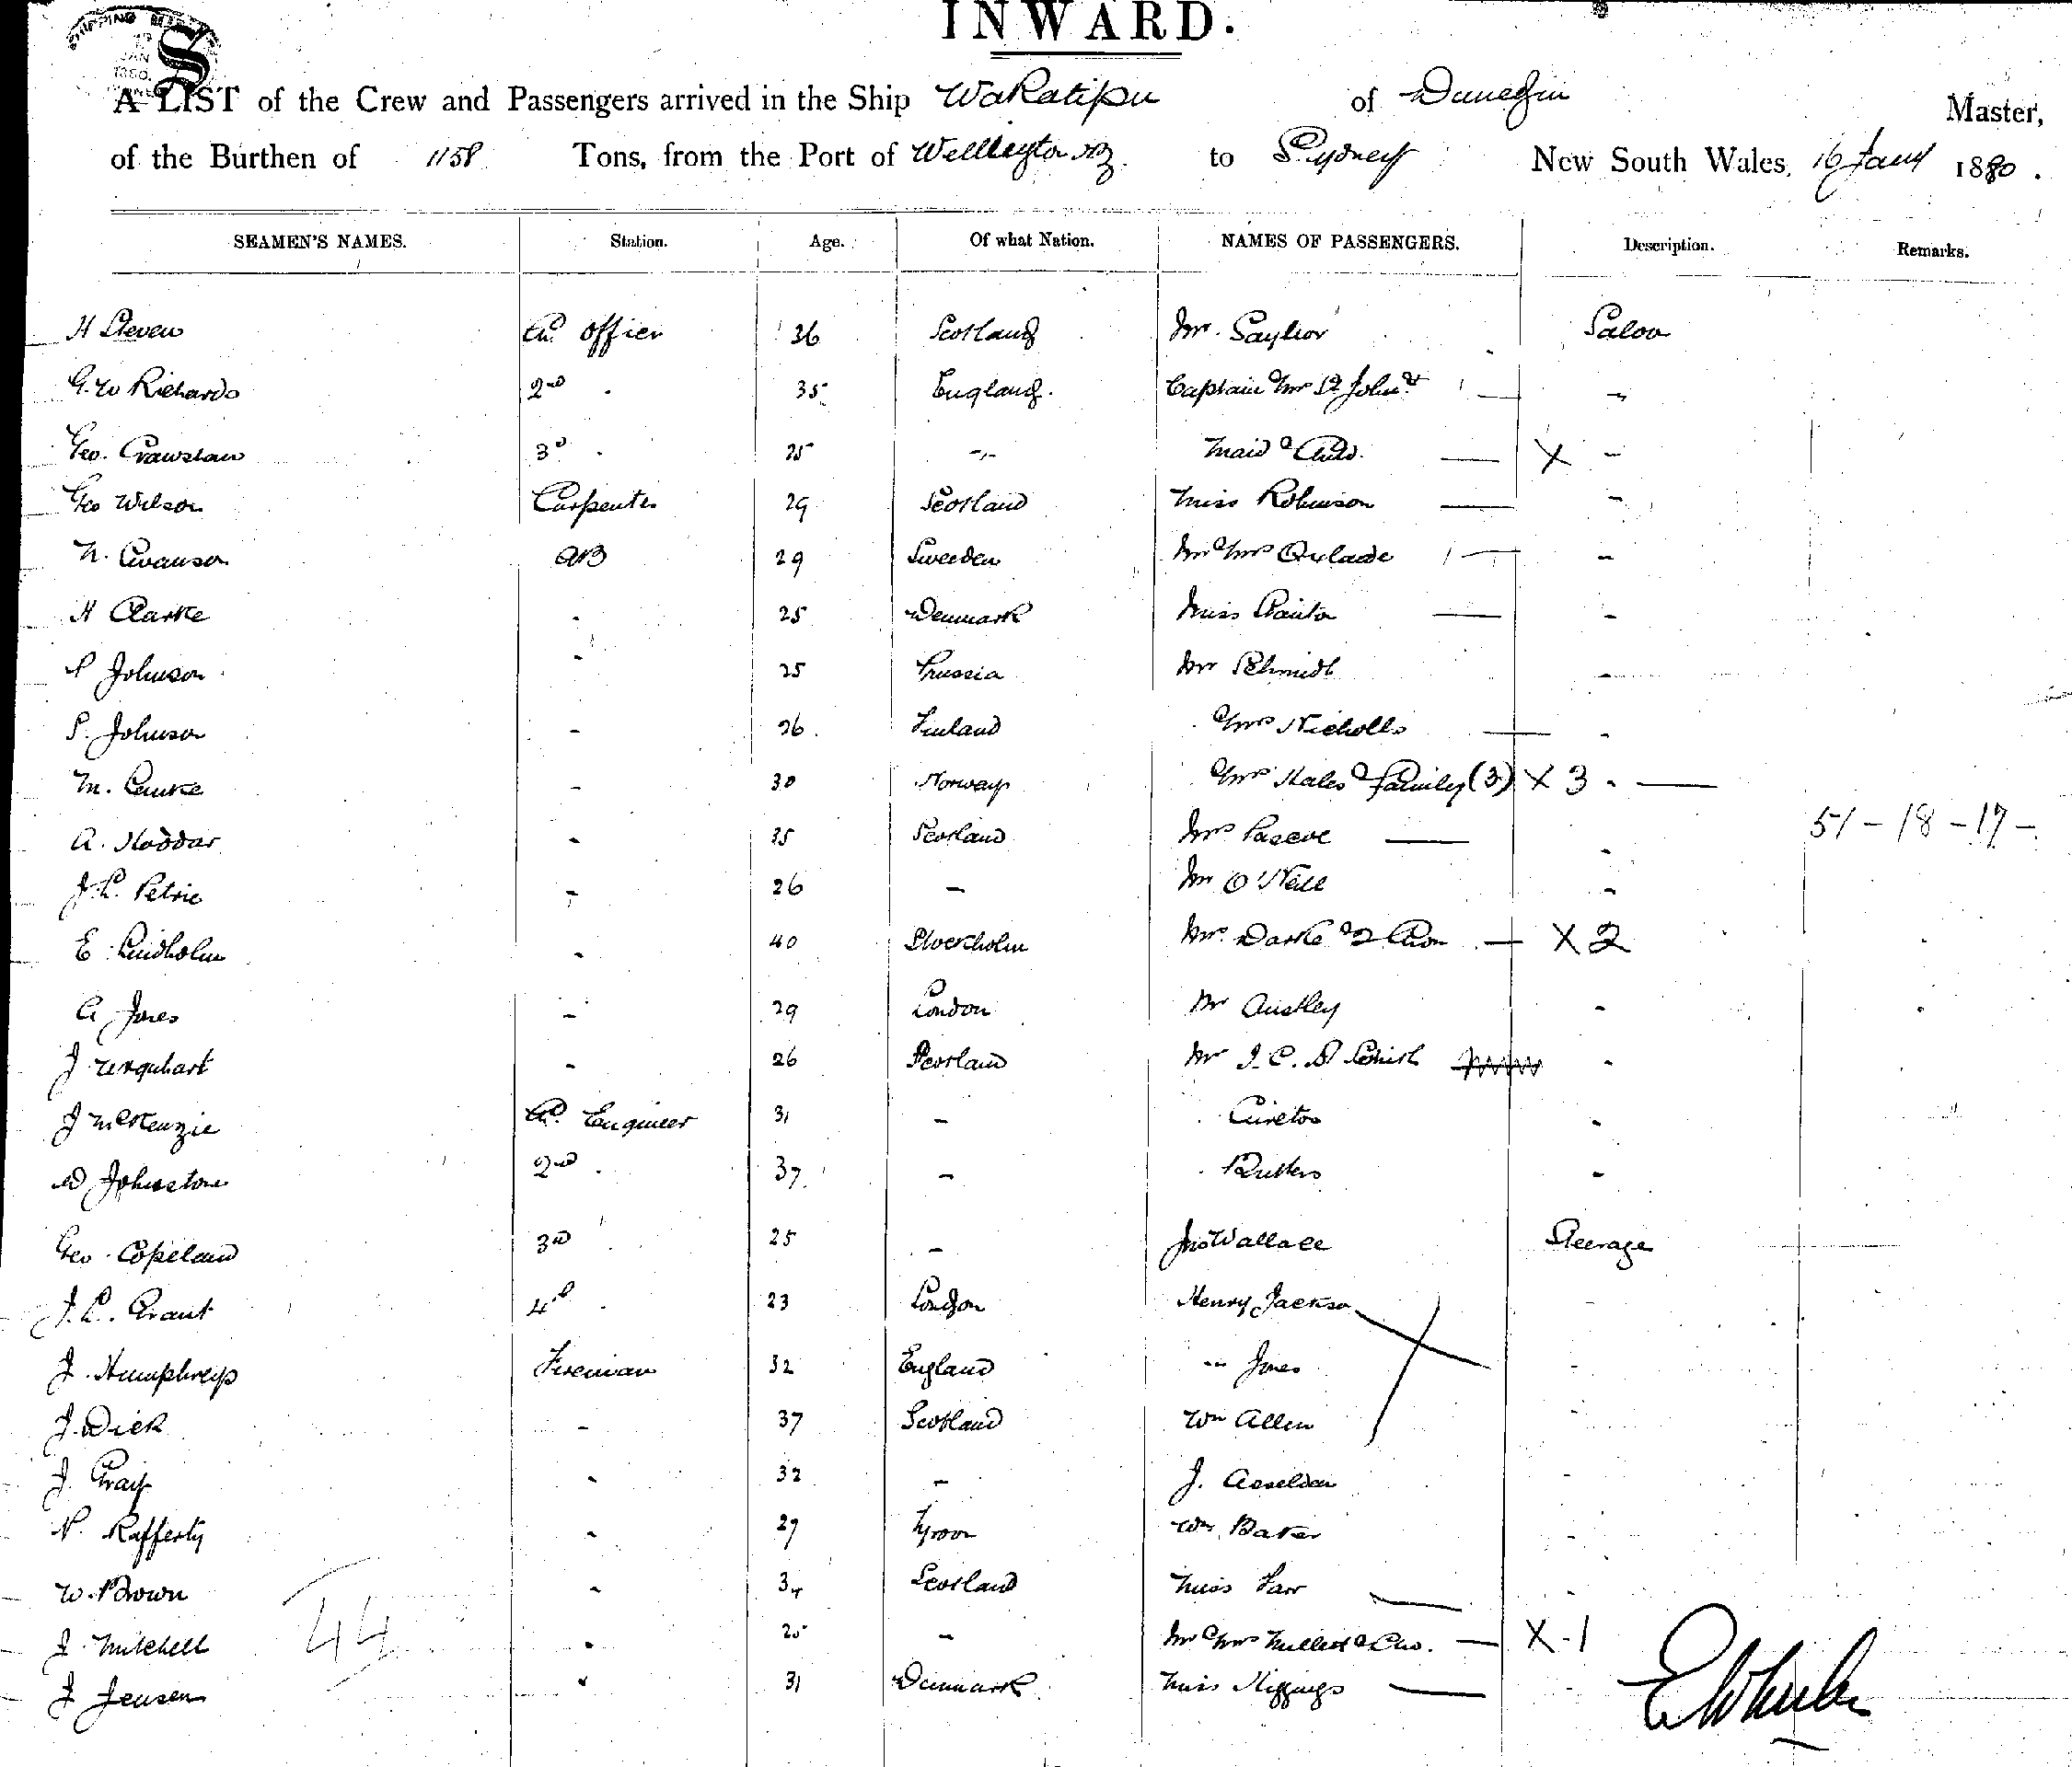 INWARD.
A LIST of the Crew and Passengers arrived in the Ship Wakatipu of Dunedin Master,
of the Burthen of 1158 Tons, from the Port of Wellington NZ. to Sydney New South Wales, 16 Jany 1880.
SEAMEN'S NAMES. Station. Age. Of what Nation. NAMES OF PASSENGERS. Description. Remarks.
H Steven Ch. Officer 36 Scotland Mr. Saloon
G. W Richards 2nd 35 England. Captain & Mrs St John &
Geo. Crawshaw 3d 25 -"- Maid & Child. X -
Geo Wilson Carpenter 29 Scotland Miss Robinson -
N. AB 29 Sweeden Mr & Mrs -
H Clarke - 25 Denmark Miss -
P Johnson - 25 Prussia Mr Schmidt -
P. Johnson - 26 Finland Mrs Nicholls -
M. - 30 Norway Mrs Hales & Family (3) X 3 -
A. Haddar - 35 Scotland Mrs Pascoe - 51-18-17-
J. L. Petrie - 26 - Mr O'Neill -
E. Lindholm - 40 Stockholm Mr. Darke & 2 Chn X 2
A Jones - 29 London Mr -
J Urquhart - 26 Scotland Mr J. C. -
J McKenzie Ch. Engineer 31 - Cureton -
D Johnstone 2nd 37 - -
Geo Copeland 3rd 25 - Jno Wallace Steerage
J. L. Grant 4th 23 London Henry Jackson -
J. Humphreys Fireman 32 England -"- Jones -
J. Dick - 37 Scotland Wm Allen -
J. Craig - 32 - J. -
N. Rafferty - 27 Tyrone Wm Baker -
W. Brown - 34 Scotland Miss Farr -
J. Mitchell - 25 - Mr & Mrs & Chd. X-1
J Jensen - 31 Denmark Miss Higgings -
44